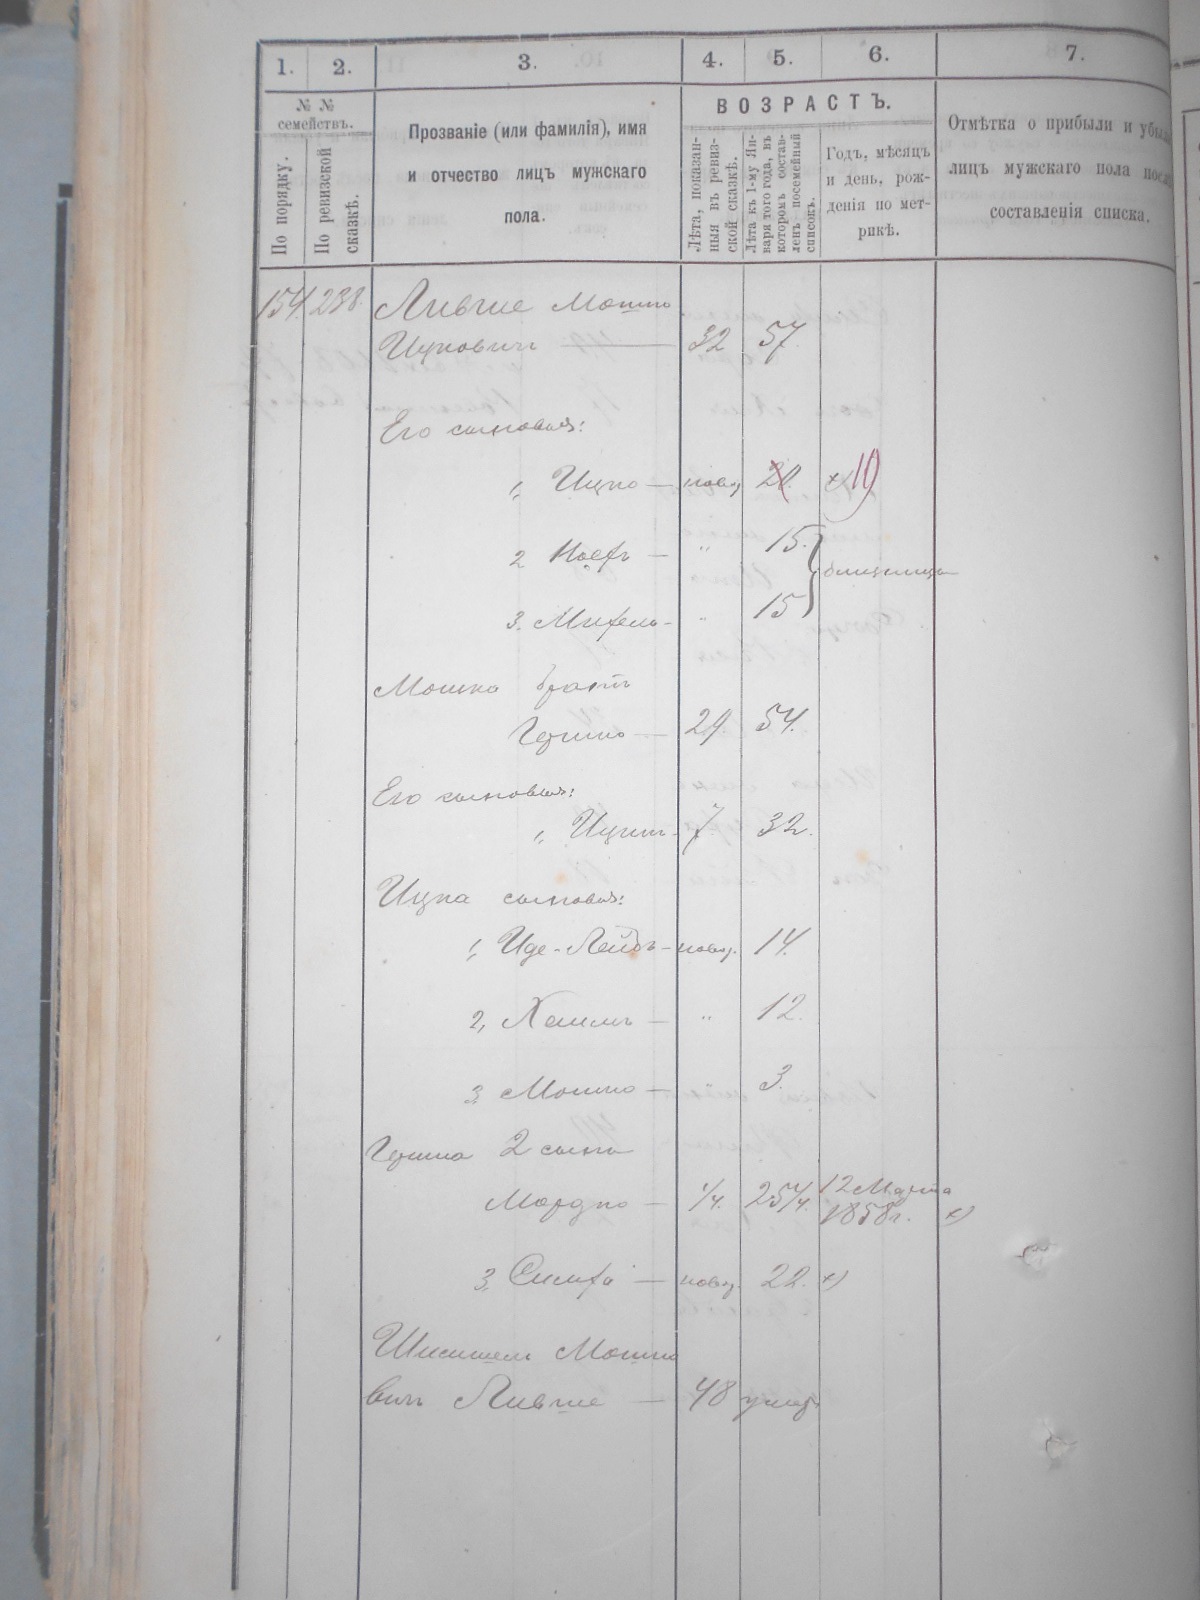 1. 2. 3. 4. 5. 6. 7.
№ № семействъ.
По порядку.
По ревизской сказкѣ.
Прозваніе (или фамилія), имя
и отчество лицъ мужскаго
пола.
ВОЗРАСТЪ.
Лѣта, показан-
ныя въ ревиз-
ской сказкѣ.
Лѣта къ 1-му Ян-
варя того года, въ
которомъ состав-
ленъ посемейный
списокъ.
Годъ, мѣсяцъ
и день, рож-
денія по мет-
рикѣ.
Отмѣтка о прибыли и убыли
лицъ мужскаго пола послѣ
составленія списка.
154. 238. Лившие Мошко
Ицковичъ — 32 57.
Его сыновья:
1, Ицко — новор. 20. x) 19
2 Иосфъ — " 15. близнецы
3. Михель - " 15
Мошка братъ
Гершко — 29. 54.
Его сыновья:
1, Ицикъ - 7. 32.
Ицка сыновья:
1, Иде-Лейбъ - новор. 14.
2, Хаимъ — " 12.
3, Мошко — 3.
Гершка 2 сына
Мордко — 1/4. 25 1/4. 12 Марта
1858 г. x)
3, Симха — новор. 22. x)
Мошко
вичъ Лившие — 48 умер.